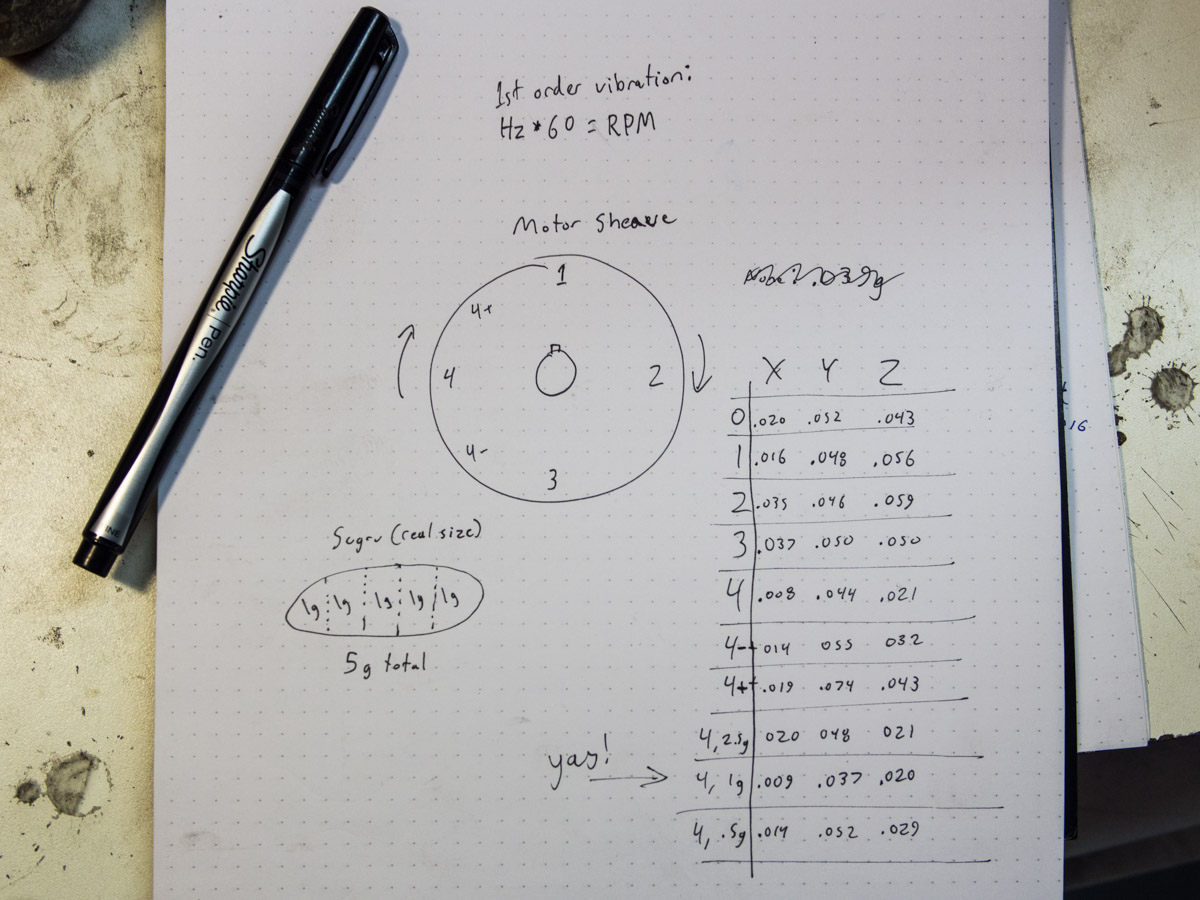 1st order vibration:
Hz * 60 = RPM
Motor Sheave
1
4+
4
2
4-
3
X Y Z
0 .020 .052 .043
1 .016 .048 .056
2 .035 .046 .059
3 .037 .050 .050
4 .008 .044 .021
4- 014 055 032
4+ .019 .074 .043
4, 2.5g 020 048 021
yas!
4, 1g .009 .037 .020
4, .5g .014 .052 .029
Sugru (real size)
1g 1g 1g 1g 1g
5g total
Sharpie. | Pen.
FINE
16